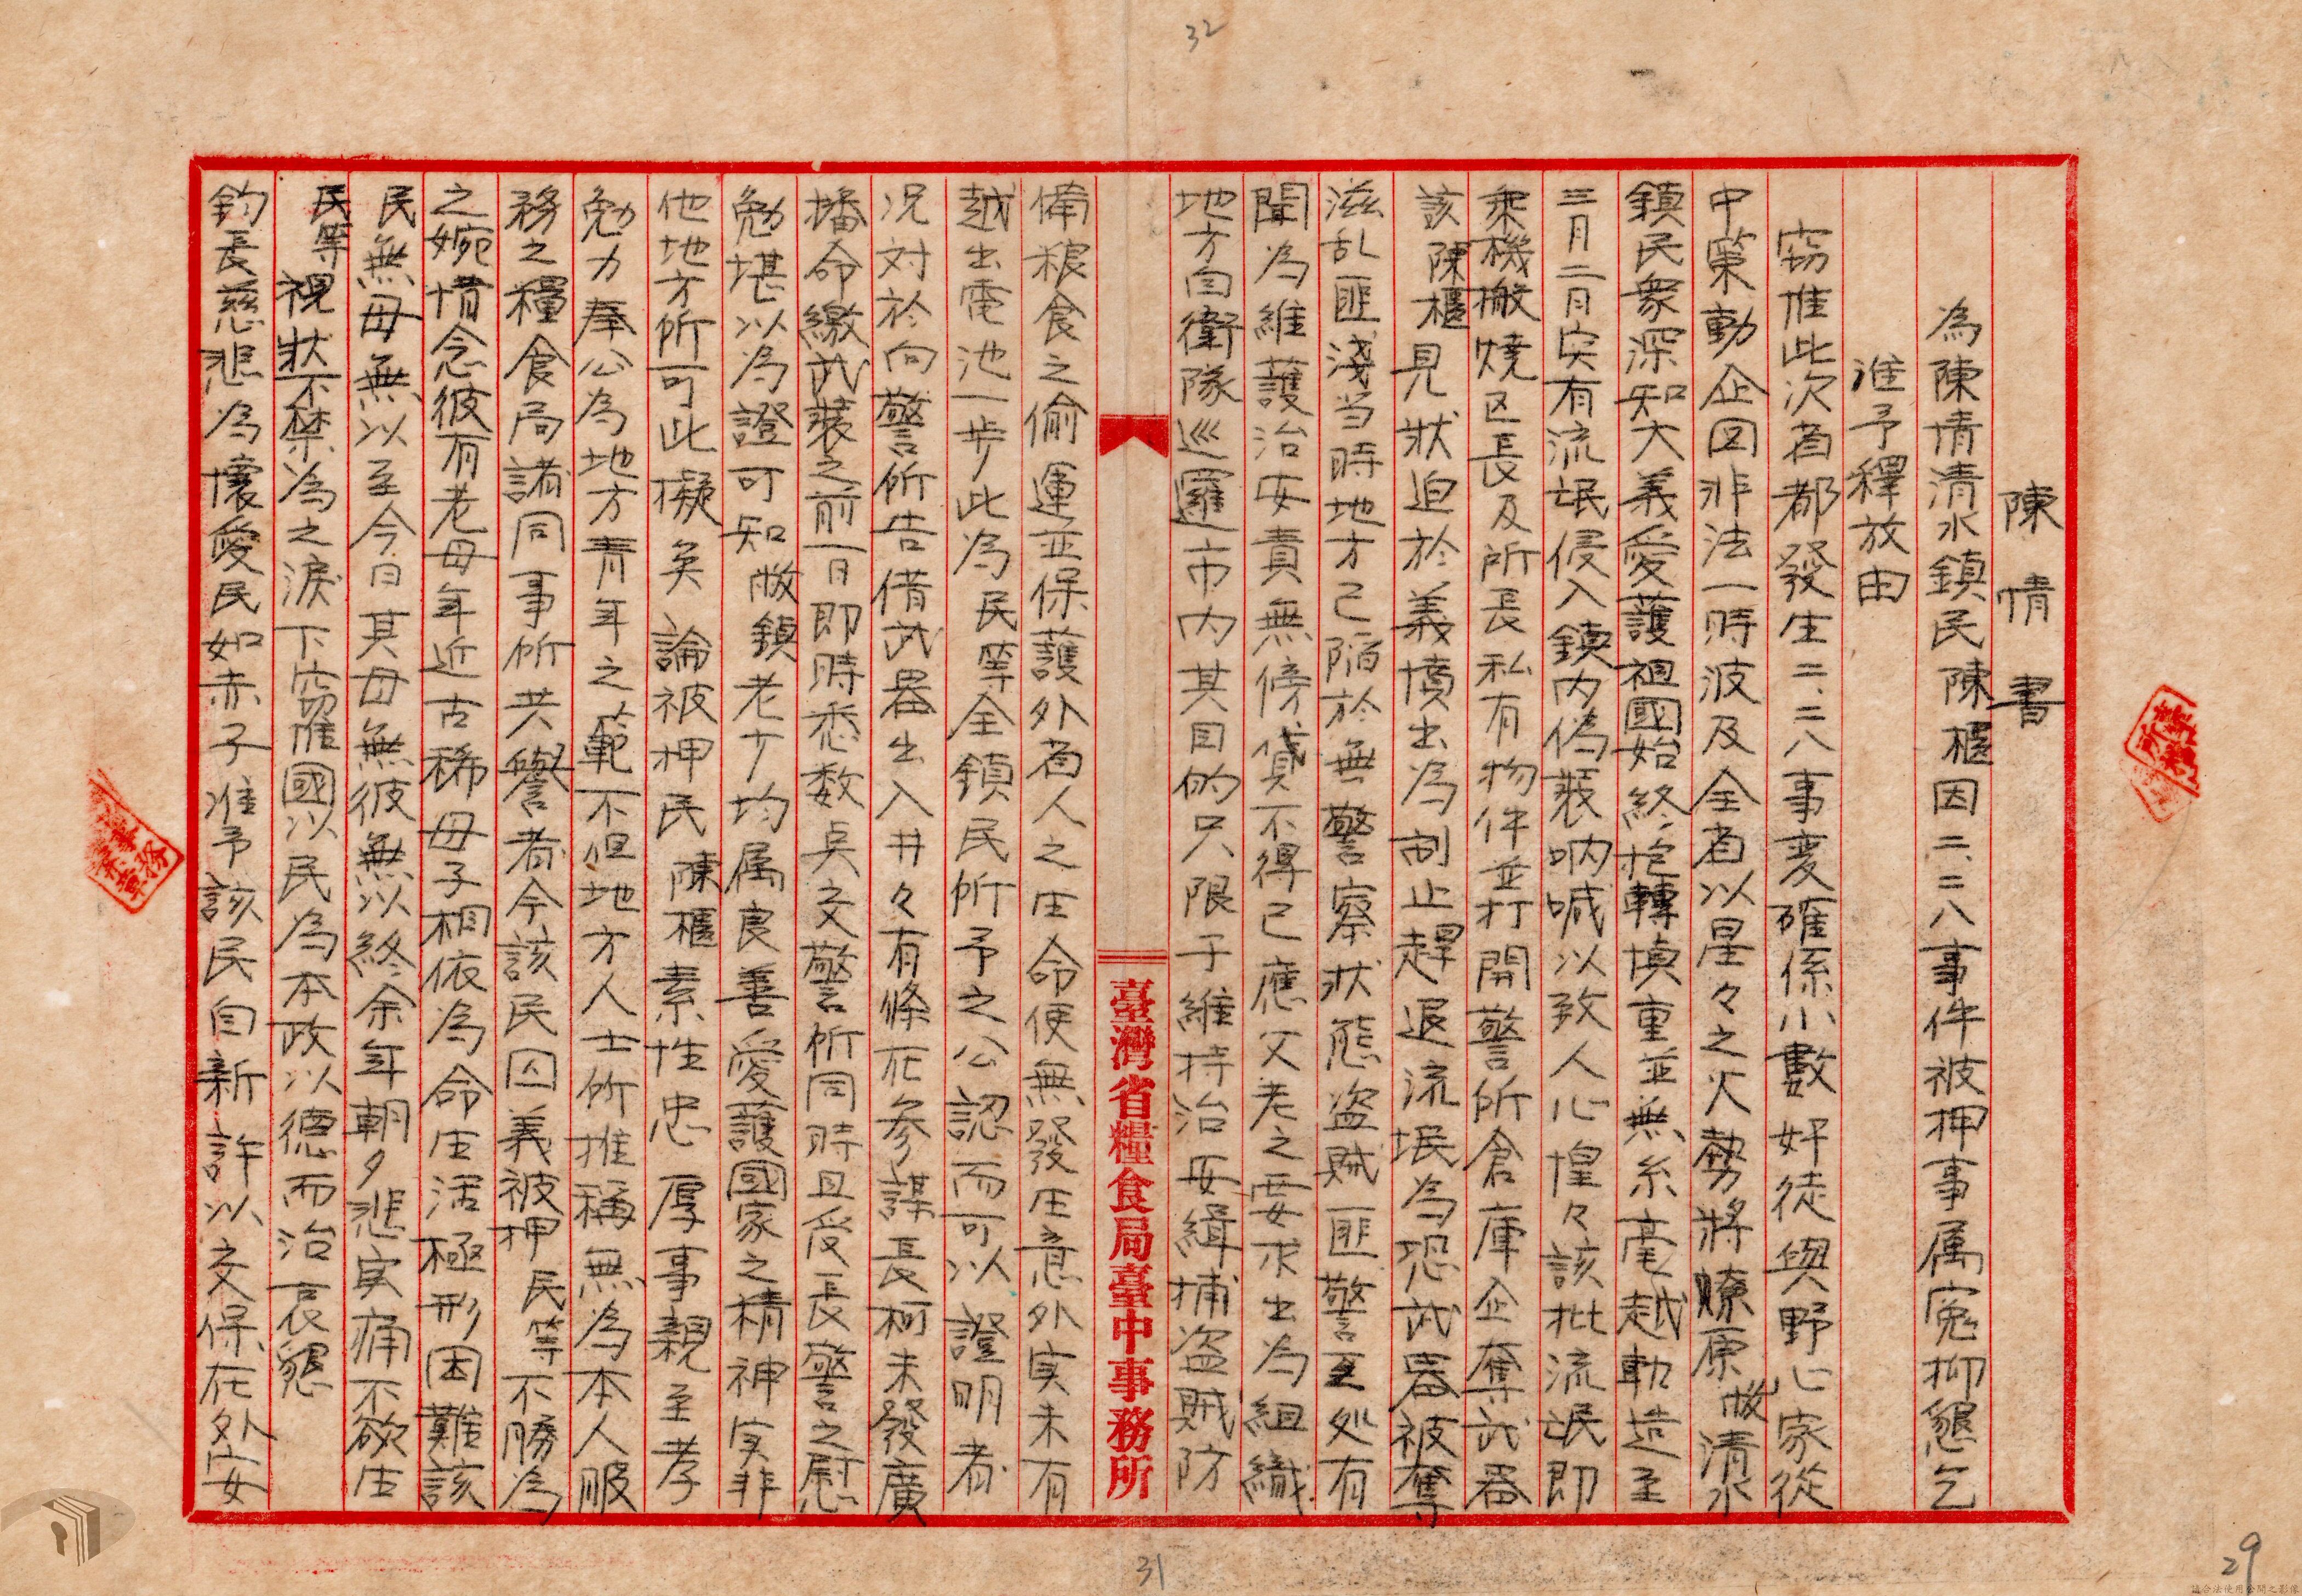 32
陳情書
為陳情清水鎮民陳櫃因二、二八事件被押事属冤抑懇乞
准予釋放由
窃惟此次省都發生二、二八事変確係小數奸徒與野心家從
中策動企図非法一時波及全省以星々之火勢將燎原敝清水
鎮民衆深知大義愛護祖國始終抱轉慎重並無糸毫越軌造至
三月二日突有流氓侵入鎮内偽裝吶喊以致人心惶々該批流氓即
乘機搬燒区長及所長私有物件並打開警所倉庫企奪武器
該陳櫃見狀迫於義憤出為制止趕退流氓為恐武器被奪
滋乱匪淺当時地方已陷於無警察狀態盜賊匪警到处有
聞為維護治安責無傍貸不得已應父老之要求出為組織
地方自衛隊巡邏市内其目的只限于維持治安緝捕盜賊防
臺灣省糧食局臺中事務所
備粮食之偷運並保護外省人之生命使無發生意外実未有
越出電池一步此為民等全鎮民所予之公認而可以證明者
况対於向警所告借武器出入井々有條在参謀長柯未發廣
播命繳武裝之前一日即時悉数点交警所同時且受長警之慰
勉堪以為證可知敝鎮老少均属良善愛護國家之精神実非
他地方所可此擬矣論被押民陳櫃素性忠厚事親至孝
勉力奉公為地方青年之範不但地方人士所推稱無為本人服
務之糧食局諸同事所共譽者今該民因義被押民等不勝為
之婉惜念彼有老母年近古稀母子相依為命生活極形困難該
民無母無以至今日其母無彼無以終余年朝夕悲実痛不欲生
民等視狀不禁為之淚下窃惟國以民為本政以德而治哀懇
鈞長慈悲為懷愛民如赤子准予該民自新許以交保在外安
31
29